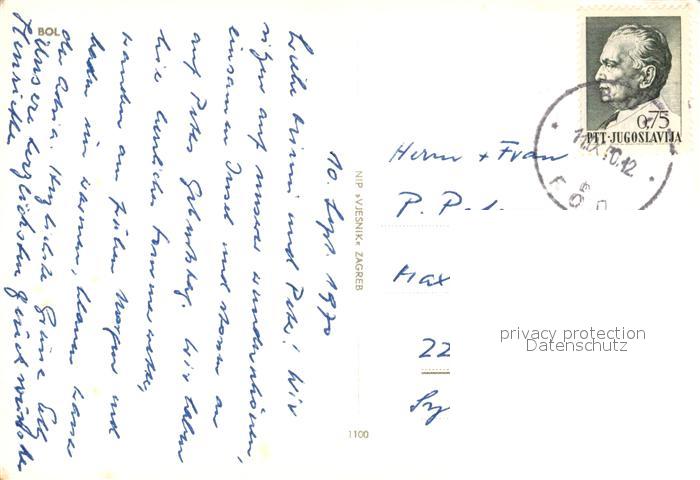 BOL
10. Sept. 1970
Liebe Mimi und Peter! Wir
sitzen auf unserer wunderschönen,
einsamen Insel und stossen an
auf Peters Geburtstag. Wir haben
hier herrliches Sommerwetter,
wandern am frühen Morgen und
baden im warmen, blauen Wasser
der Adria. Herzlichste Grüsse Euch
Unsere herzlichsten Glückwünsche
Henriette
NIP »VJESNIK« ZAGREB
1100
0,75
PTT·JUGOSLAVIJA
Herrn + Frau
P. P
Max
22
privacy protection
Datenschutz